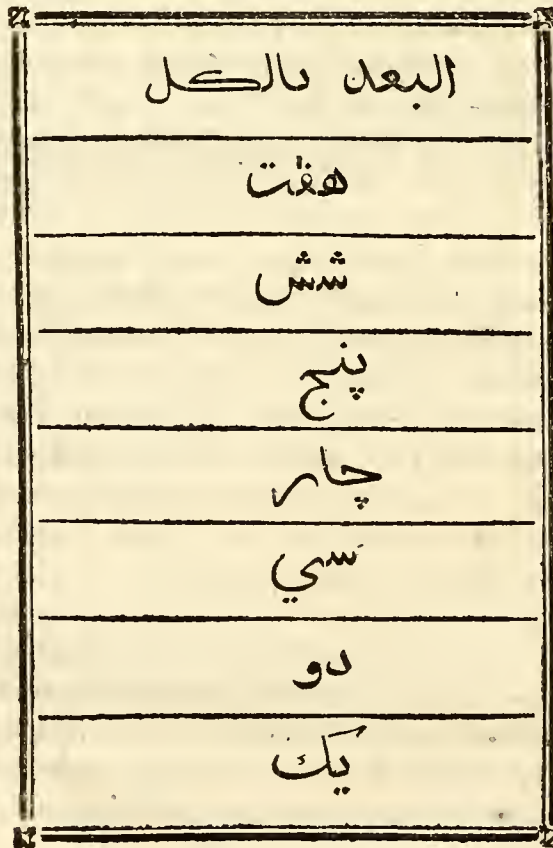 البعد بالكل
هفت
شش
پنج
چار
سي
دو
يك